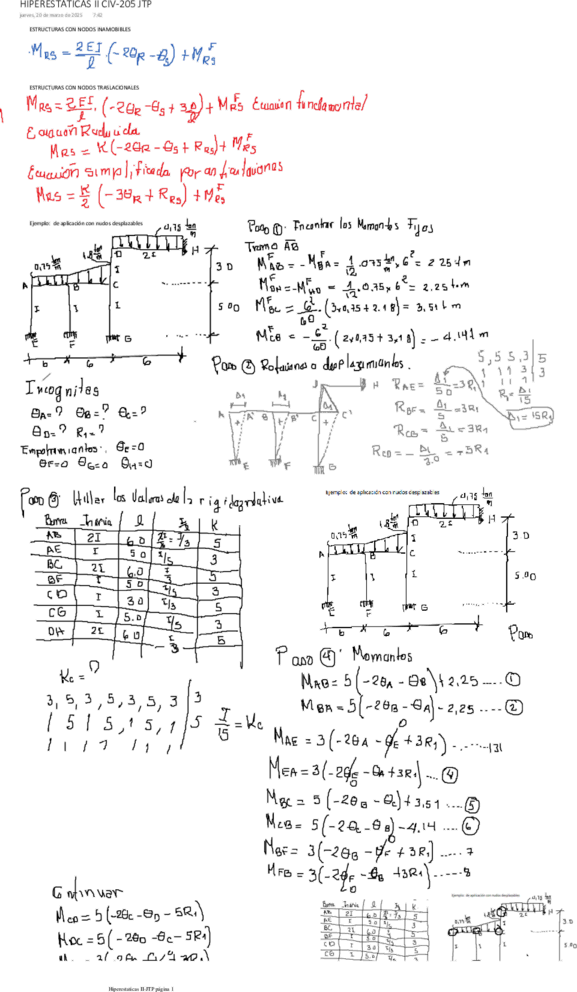 HIPERESTATICAS II CIV-205 JTP
jueves, 20 de marzo de 2025 7:42
ESTRUCTURAS CON NODOS INAMOBIBLES
M_RS = 2EI/l · (-2θR - θs) + M^F_RS
ESTRUCTURAS CON NODOS TRASLACIONALES
M_RS = 2EI/l · (-2θR - θs + 3Δ/l) + M^F_RS Ecuacion fundamental
Ecuación Reducida
M_RS = K(-2θR - θs + R_RS) + M^F_RS
Ecuación simplificada por articulaciones
M_RS = K/2 (-3θR + R_RS) + M^F_RS
Ejemplo: de aplicación con nudos desplazables
0,75 ton/m
1,8 ton/m
D 2I H
0,75 ton/m
I 3.0
A B C
I I I 5.00
E F G
6 6 6
Paso ①. Encontrar los Momentos Fijos
Tramo AB
M^F_AB = -M^F_BA = 1/12 · 0.75 ton/m × 6² = 2.25 t.m
M^F_DH = -M^F_HD = 1/12 · 0.75 × 6² = 2.25 t.m
M^F_BC = 6²/60 · (3×0,75 + 2·1.8) = 3,51 t m
M^F_CB = -6²/60 · (2×0,75 + 3×1.8) = -4.14 t m
Paso ② Rotaciones o desplazamientos.
Incognitas
θA = ? θB = ? θc = ?
θD = ? R1 = ?
Empotramientos: θE = 0
θF = 0 θG = 0 θH = 0
Δ1 Δ1 J H
A A' B B' C C'
E F G
R_AE = Δ1/5.0 = 3R1
R_BF = Δ1/5 = 3R1
R_CG = Δ1/5 = 3R1
R_CD = -Δ1/3.0 = -5R1
5, 5 5, 3 | 5
1 1 1 3 | 3
1 1 1 1
R1 = Δ1/15
Δ1 = 15R1
Paso ③. Hallar los Valores de la rigidez relativa
Barra Inercia l I/l K
AB 2I 6.0 2I/6 = I/3 5
AE I 5.0 I/5 3
BC 2I 6.0 I/3 5
BF I 5.0 I/5 3
CD I 3.0 I/3 5
CG I 5.0 I/5 3
DH 2I 6.0 I/3 5
Kc =
3, 5, 3, 5, 3, 5, 3 | 3
1 5 1 5, 1 5, 1 | 5
1 1 1 1 1 1 1
I/15 = Kc
Ejemplo: de aplicación con nudos desplazables
0,75 ton/m
1,8 ton/m
D 2I H
0,75 ton/m
I 3.0
A B C
I I I 5.00
E F G
6 6 6
Paso
Paso ④: Momentos
M_AB = 5(-2θA - θB) + 2,25 ..... ①
M_BA = 5(-2θB - θA) - 2,25 ..... ②
M_AE = 3(-2θA - θE + 3R1) ........ (3)
0
M_EA = 3(-2θE - θA + 3R1) .... ④
M_BC = 5(-2θB - θc) + 3,51 .... ⑤
M_CB = 5(-2θc - θB) - 4.14 .... ⑥
M_BF = 3(-2θB - θF + 3R1) ..... 7
0
M_FB = 3(-2θF - θB + 3R1) ..... 8
0
Continuar
M_CD = 5(-2θc - θD - 5R1)
M_DC = 5(-2θD - θc - 5R1)
Barra Inercia l K
AB 2I 6.0 5
AE I 5.0 3
BC 2I 6.0 5
BF I 5.0 3
CD I 3.0 5
CG I 5.0
Ejemplo: de aplicación con nudos desplazables
Hiperestaticas II-JTP página 1